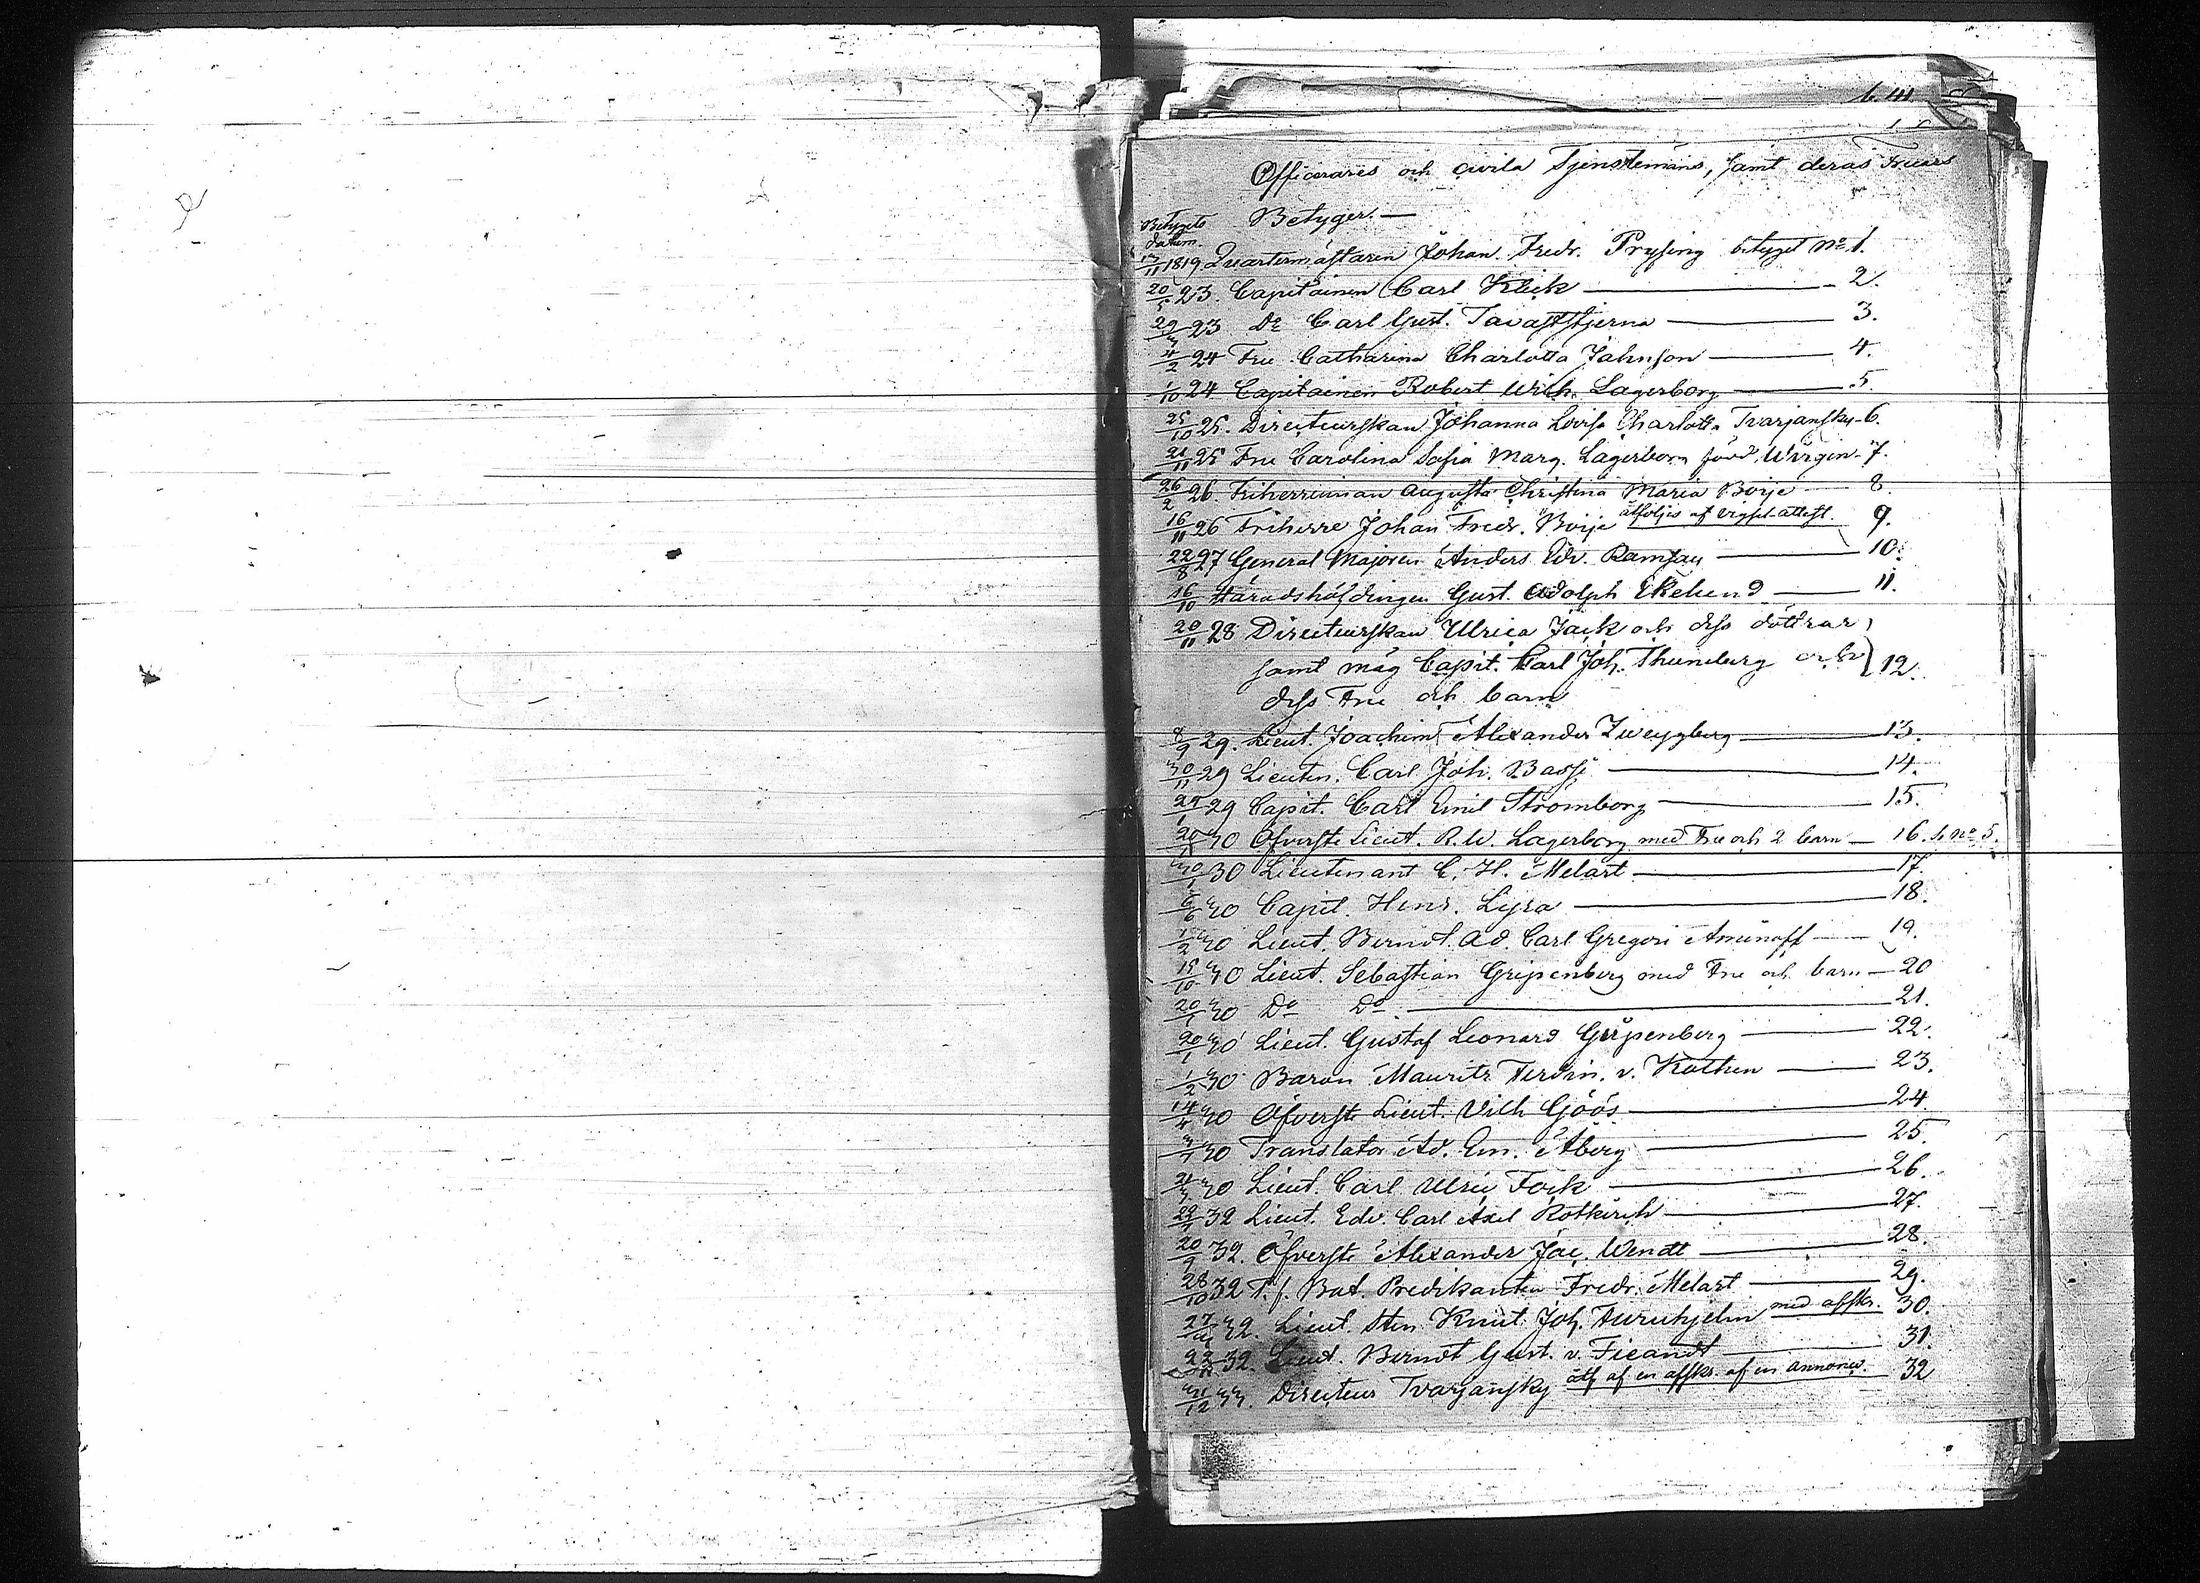 Officerares och civila Tjenstemäns, samt deras Fruars
Betygets
datum
Betyger.—
13/11 1819 Quartermästaren Johan Fredr. Prysing betyget No 1.
20/ 23. Capitainen Carl Klick — 2.
29/ 23 Do Carl Gust. Tavaststjerna — 3.
4/2 24 Fru Catharina Charlotta Jahnson — 4.
1/10 24 Capitainen Robert Wilh. Lagerborg — 5.
25/10 25. Directeurskan Johanna Lovisa Charlotta Tvarjansky - 6.
21/11 25 Fru Carolina Sofia Marg. Lagerborg född Wirgin - 7.
26/2 26 Friherrinnan Augusta Christina Maria Boije — 8.
16/11 26 Friherre Johan Fredr. Boije åtföljes af vigsel-attest. 9.
22/8 27 General Majoren Anders Edv. Ramsay — 10.
16/10 Häradshöfdingen Gust. Adolph Ekelund — 11.
20/11 28 Directeurskan Ulrica Jack och dess döttrar
samt måg Capit. Carl Joh. Thuneberg och 12.
dess Fru och barn
8/9 29. Lieut. Joachim Alexander Zweygberg — 13.
30/11 29 Lieuten. Carl Joh. Basse — 14.
29/1 29 Capit. Carl Emil Stromborg — 15.
20/ 30 Öfverste Lieut. R. W. Lagerborg med Fru och 2 barn — 16. se no 5.
30/1 30 Lieutenant C. H. Melart — 17.
6/6 30 Capit. Henr. Lyra — 18.
1/2 30 Lieut. Berndt Ad. Carl Gregori Aminoff — 19.
15/10 30 Lieut. Sebastian Gripenberg med Fru och barn — 20
20/1 30 Do Do — 21.
20/1 30 Lieut. Gustaf Leonard Gripenberg — 22.
1/2 30 Baron Mauritz Ferdin. v. Kothen — 23.
14/4 30 Öfverste Lieut. Vilh Göös — 24.
3/7 30 Translator Ad. Em. Åberg — 25.
30 Lieut. Carl Ulric Fock — 26.
22/7 32 Lieut. Edv. Carl Axel Rotkirch — 27.
20/9 32. Öfverste Alexander Jac. Wendt — 28.
28/10 32 T. f. Bat. Predikanten Fredr. Melart — 29.
27/ 32. Lieut. Sten Knut Joh. Furuhjelm med afskr. 30.
22/ 32. Lieut. Berndt Gust. v. Fieandt — 31.
31/12 33. Directeur Tvarjansky åtf af en afskr. af en annonce. 32